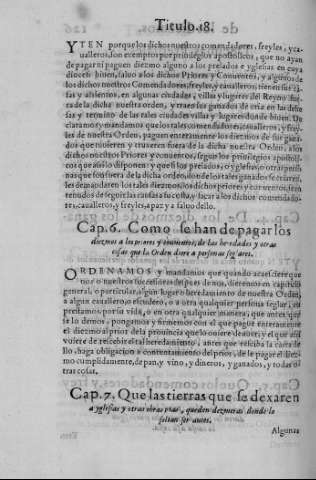 Titulo.18.
YTEN porque los dichos nuestros comendadores, freyles, y ca-
ualleros, son exemptos por priuilegios apostolicos, que no ayan
de pagar ni paguen diezmo alguno a los prelados y yglesias en cuya
diocesi biuen, saluo a los dichos Priores y Conuentos, y algunos de
los dichos nuestros Comendadores, freyles, y caualleros, tienen sus ca-
sas y assientos, en algunas cidades, villas y lugares del Reyno, fue-
ra de la dicha nuestra orden, y traen sus ganados de cria en las dehe-
sas y termino de las tales ciudades villas y lugares donde biuen. De
claramos y mandamos que los tales comendadores, caualleros, y frey-
les de nuestra Orden, paguen enteramente los diezmos de sus gana-
dos que tuuieren y truxeren fuera de la dicha nuestra Orden, a los
dichos nuestros Priores y conuentos, segun los priuilegios apostoli-
cos que assi lo disponen: y que si los prelados, o yglesias, o otras perso-
nas que son fuera de la dicha orden, do los tales ganados se criaren,
les demandaren los tales diezmos, los dichos priores y conuentos, sean
tenudos de seguir las causas fasta que a los dichos comendado-
res, caualleros, y freyles, a paz y a saluo dello.
Cap. 6. Como se han de pagar los
diezmos a los priores y conuentos, de las heredades y otras
cosas que la Orden diere a personas seglares.
ORDENAMOS y mandamos que quando acaesciere que
nos o nuestros successores despues de nos, dieremos en capitulo
general, o particular, algun lugar o heredamiento de nuestra Orden,
a algun cauallero, o escudero, o a otra qualquier persona seglar, en
prestamo, por su vida, o en otra qualquier manera, que antes que
se lo demos, pongamos y firmemos con el que pague enteramente
el diezmo al prior de la prouincia que lo ouiere de auer: y el que assi
ouiere de rescebir el tal heredamiento, antes que reciba la carta de
ello, haga obligacion o contentamiento del prior, de le pagar el diez-
mo cumplidamente, de pan, y vino, y dineros, y ganados, y todas o-
tras cosas.
Cap. 7. Que las tierras que se dexaren
a yglesias y otras obras pias, queden dezmeras donde lo
solian ser antes.
Algunas